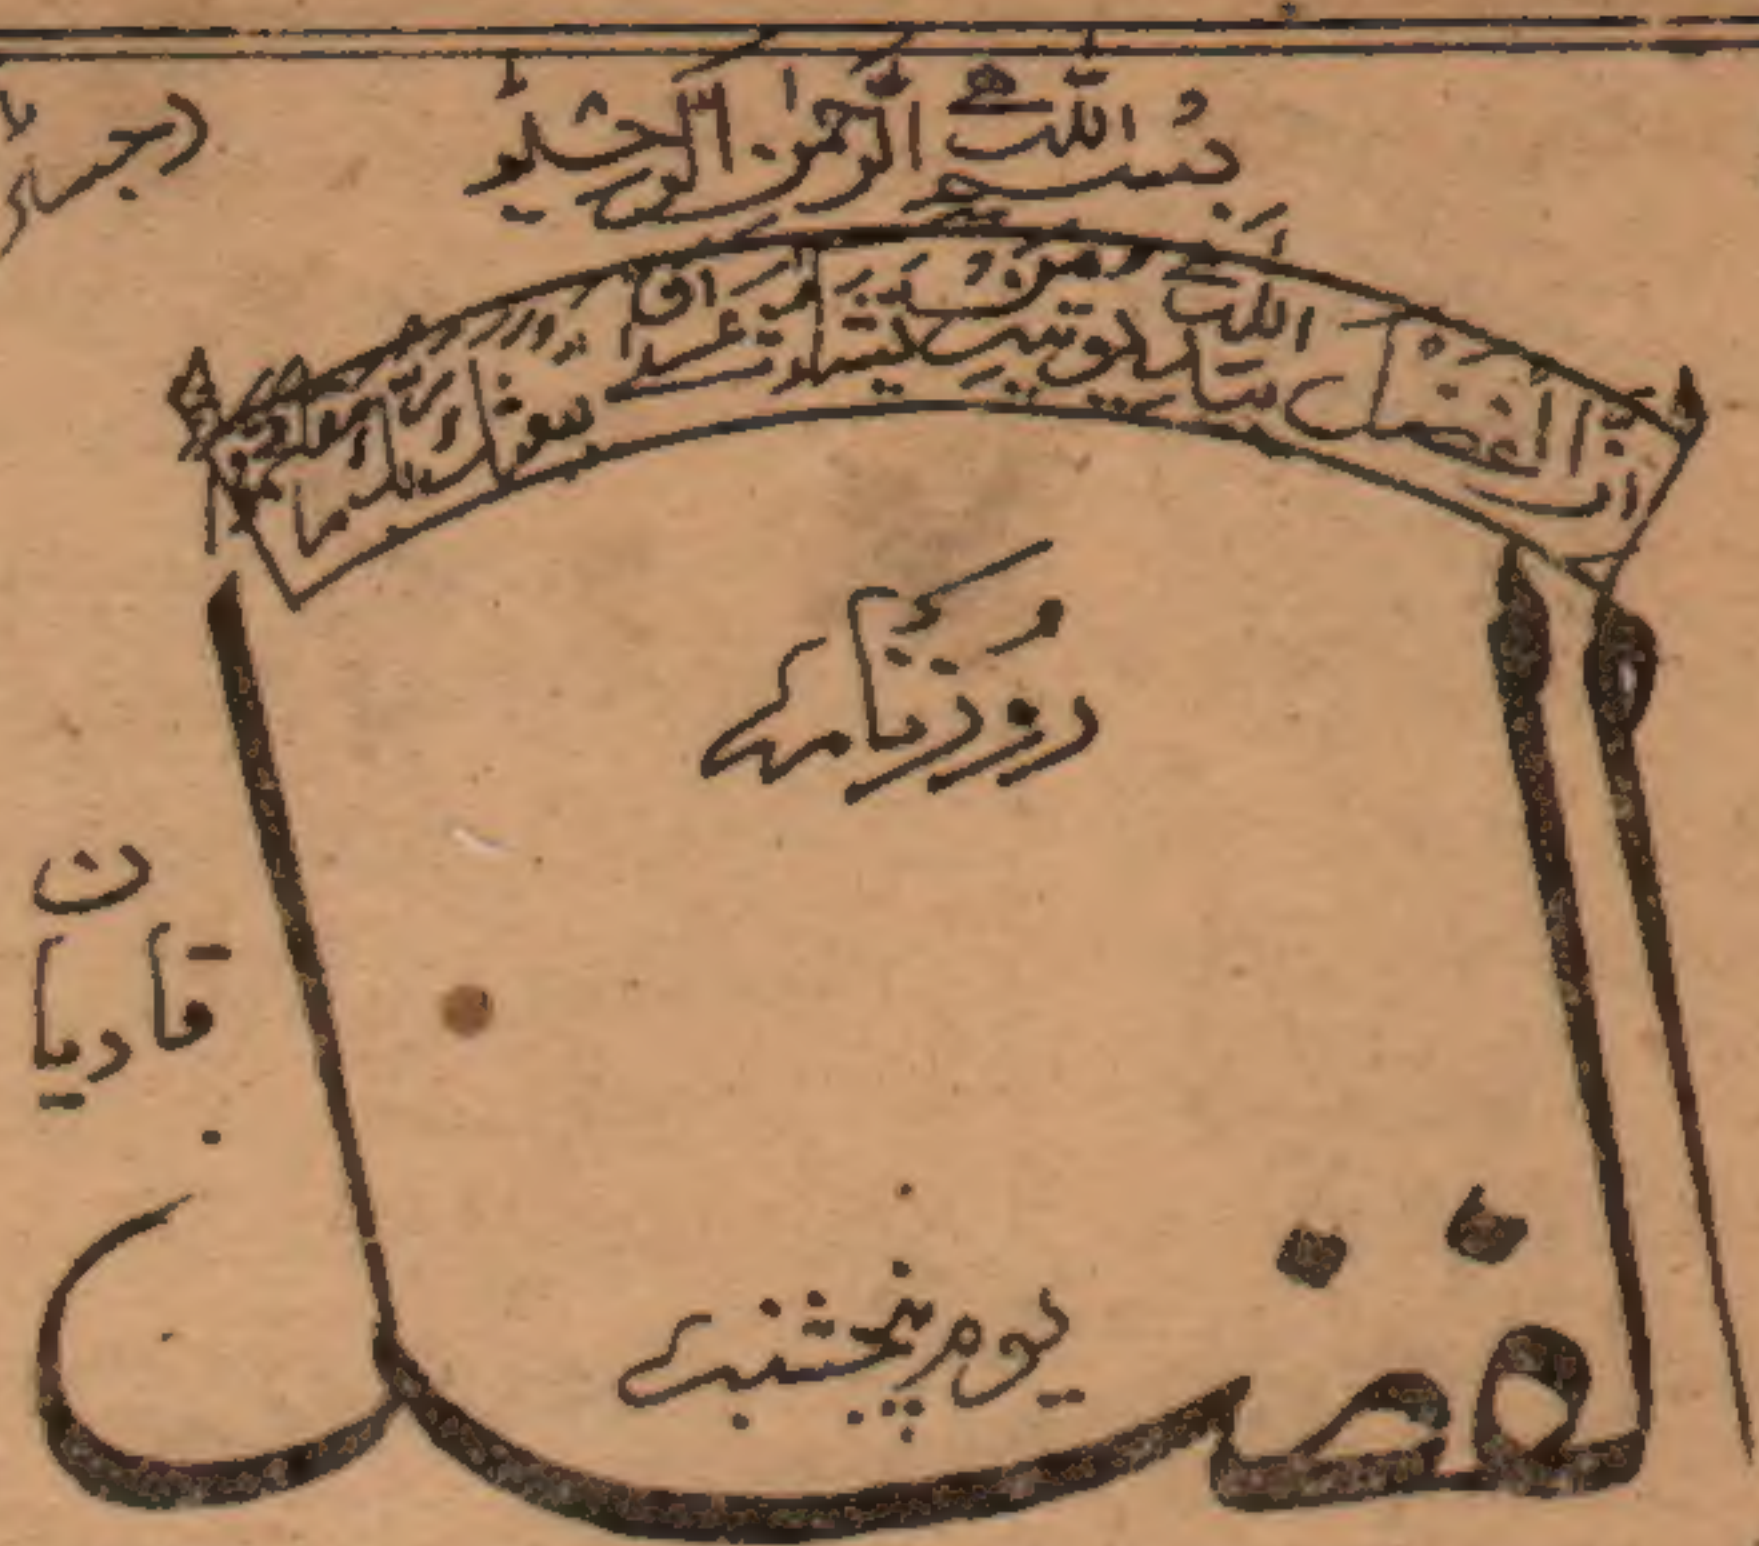 بسم الله الرحمن الرحيم
ان الفضل بيد الله يوتيه من يشاء عسى ان يبعثك ربك مقاما محمودا
روزنامہ
قادیان
الفضل
یوم پنجشنبہ